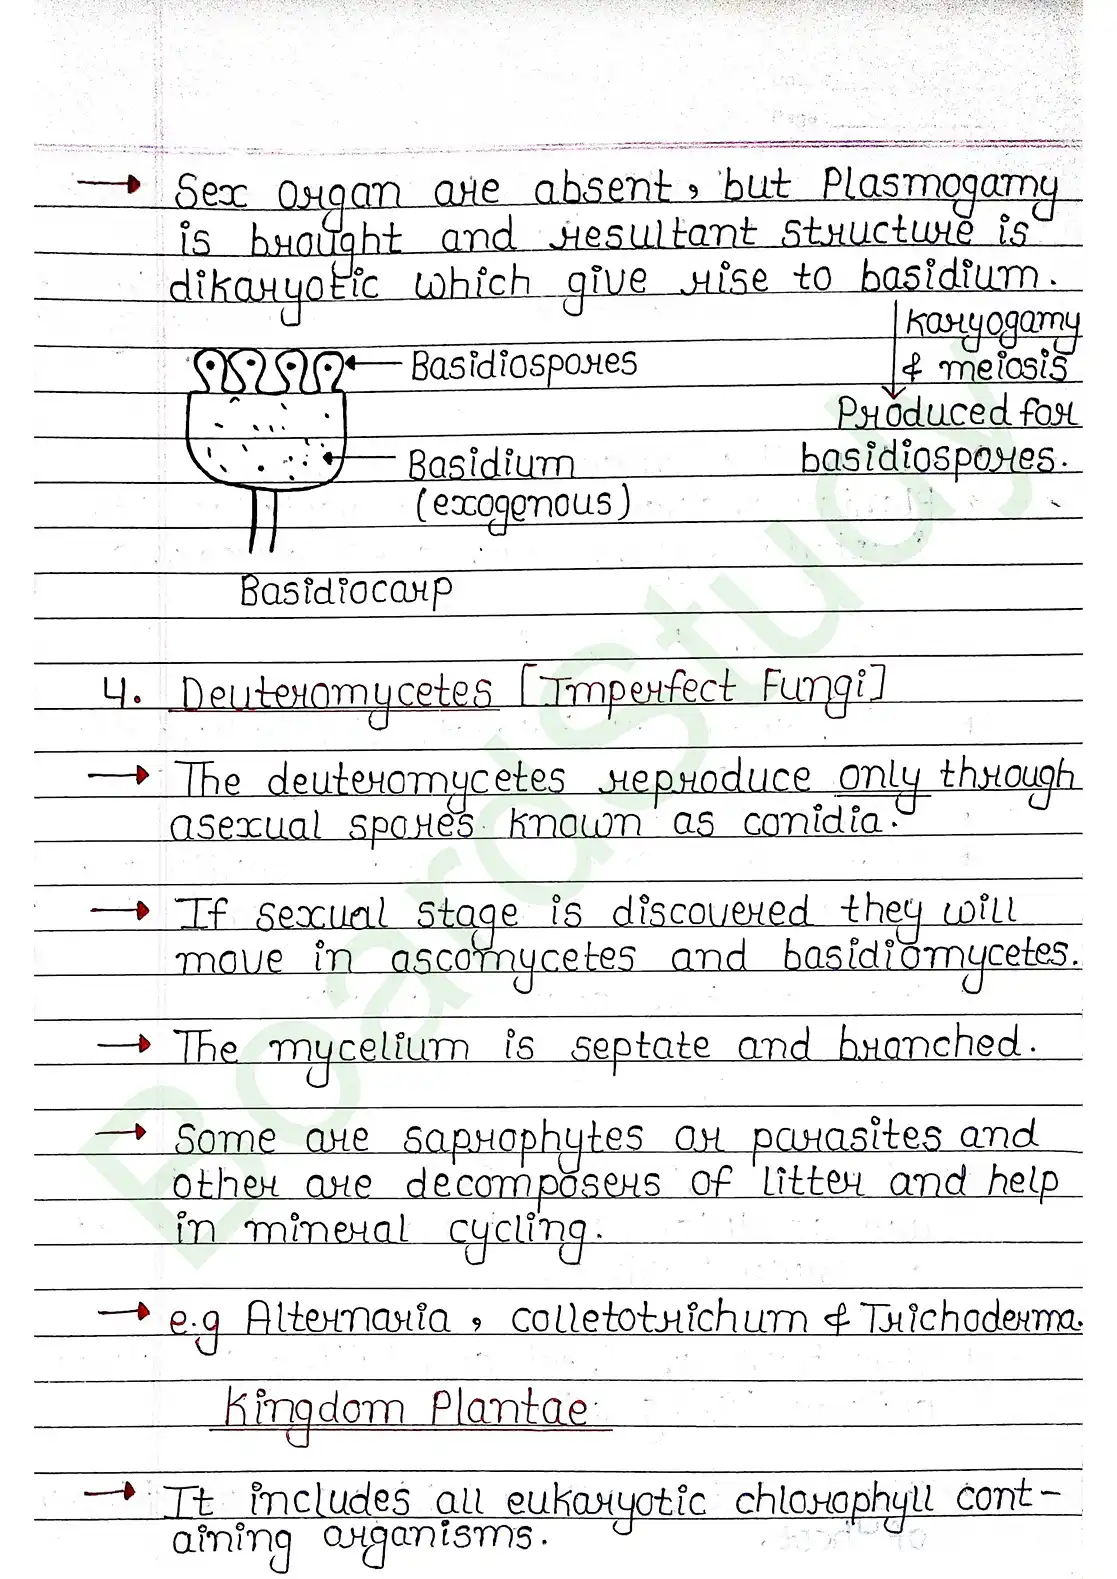 → Sex organ are absent, but Plasmogamy
is brought and resultant structure is
dikaryotic which give rise to basidium.
karyogamy
& meiosis
Produced for
basidiospores.
Basidiospores
Basidium
(exogenous)
Basidiocarp
4. Deuteromycetes [Imperfect Fungi]
→ The deuteromycetes reproduce only through
asexual spores known as conidia.
→ If sexual stage is discovered they will
move in ascomycetes and basidiomycetes.
→ The mycelium is septate and branched.
→ Some are saprophytes or parasites and
other are decomposers of litter and help
in mineral cycling.
→ e.g Alternaria, colletotrichum & Trichoderma.
Kingdom Plantae
→ It includes all eukaryotic chlorophyll cont-
aining organisms.
BoardStudy